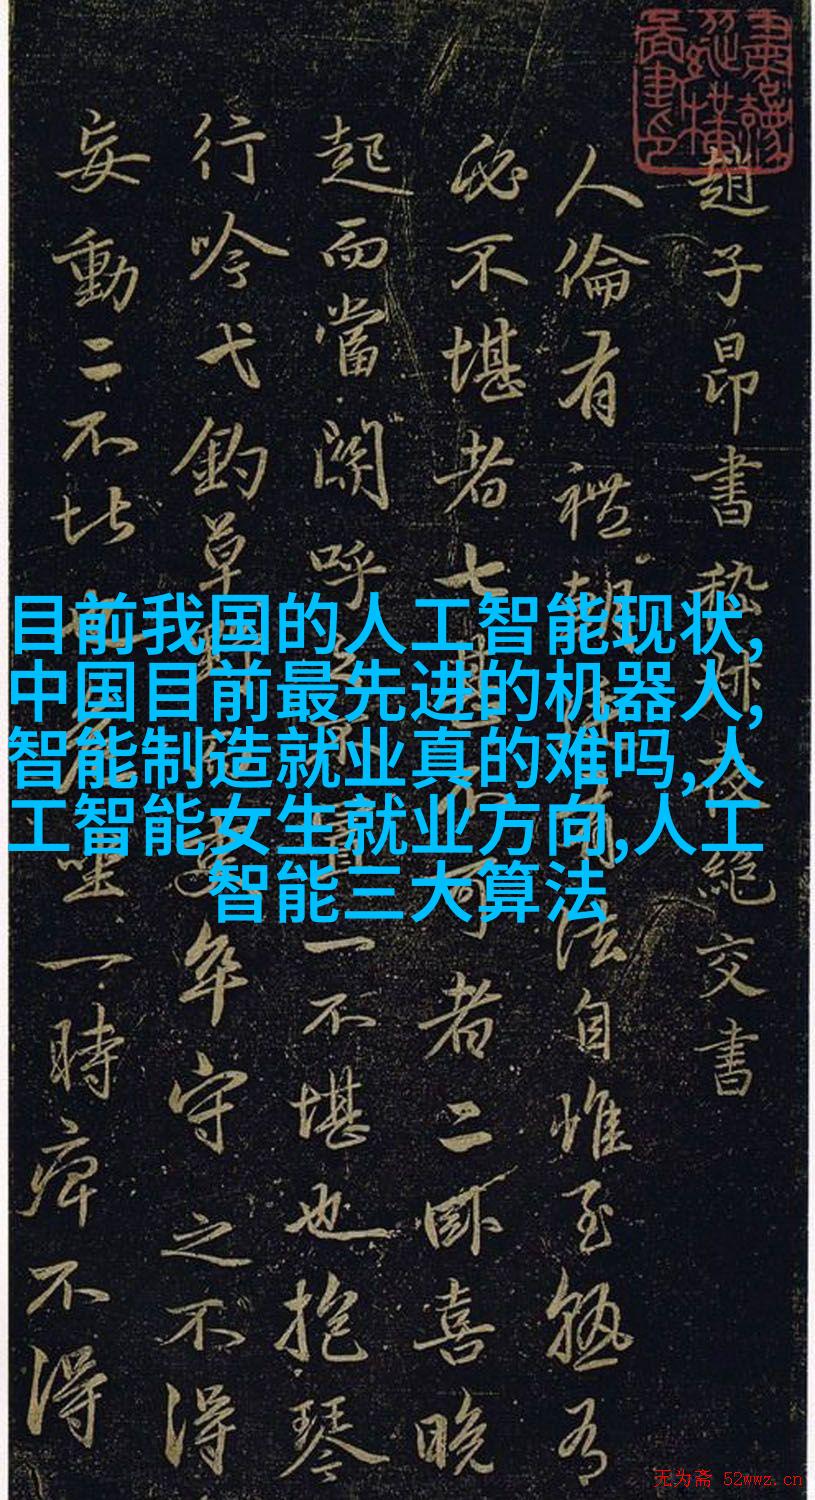 趙子昂書嵇叔夜絕交書
人倫有禮朝廷有法自惟至熟有
必不堪者七甚不可者二臥喜晚
起而當關呼之不置一不堪也抱琴
行吟弋釣草野而吏卒守之不得
妄動二不堪也危坐一時痺不得
目前我国的人工智能现状,
中国目前最先进的机器人,
智能制造就业真的难吗,人
工智能女生就业方向,人工
智能三大算法
无为斋 52wwz.cn